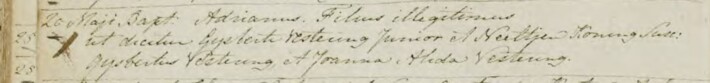 20 Maji Bapt: Adrianus. Filius illegitimus
ut dicitur Gysberti Versteeg Junior et Neeltjen Koning Susc:
Gysbertus Versteeg, et Joanna Alida Versteeg.